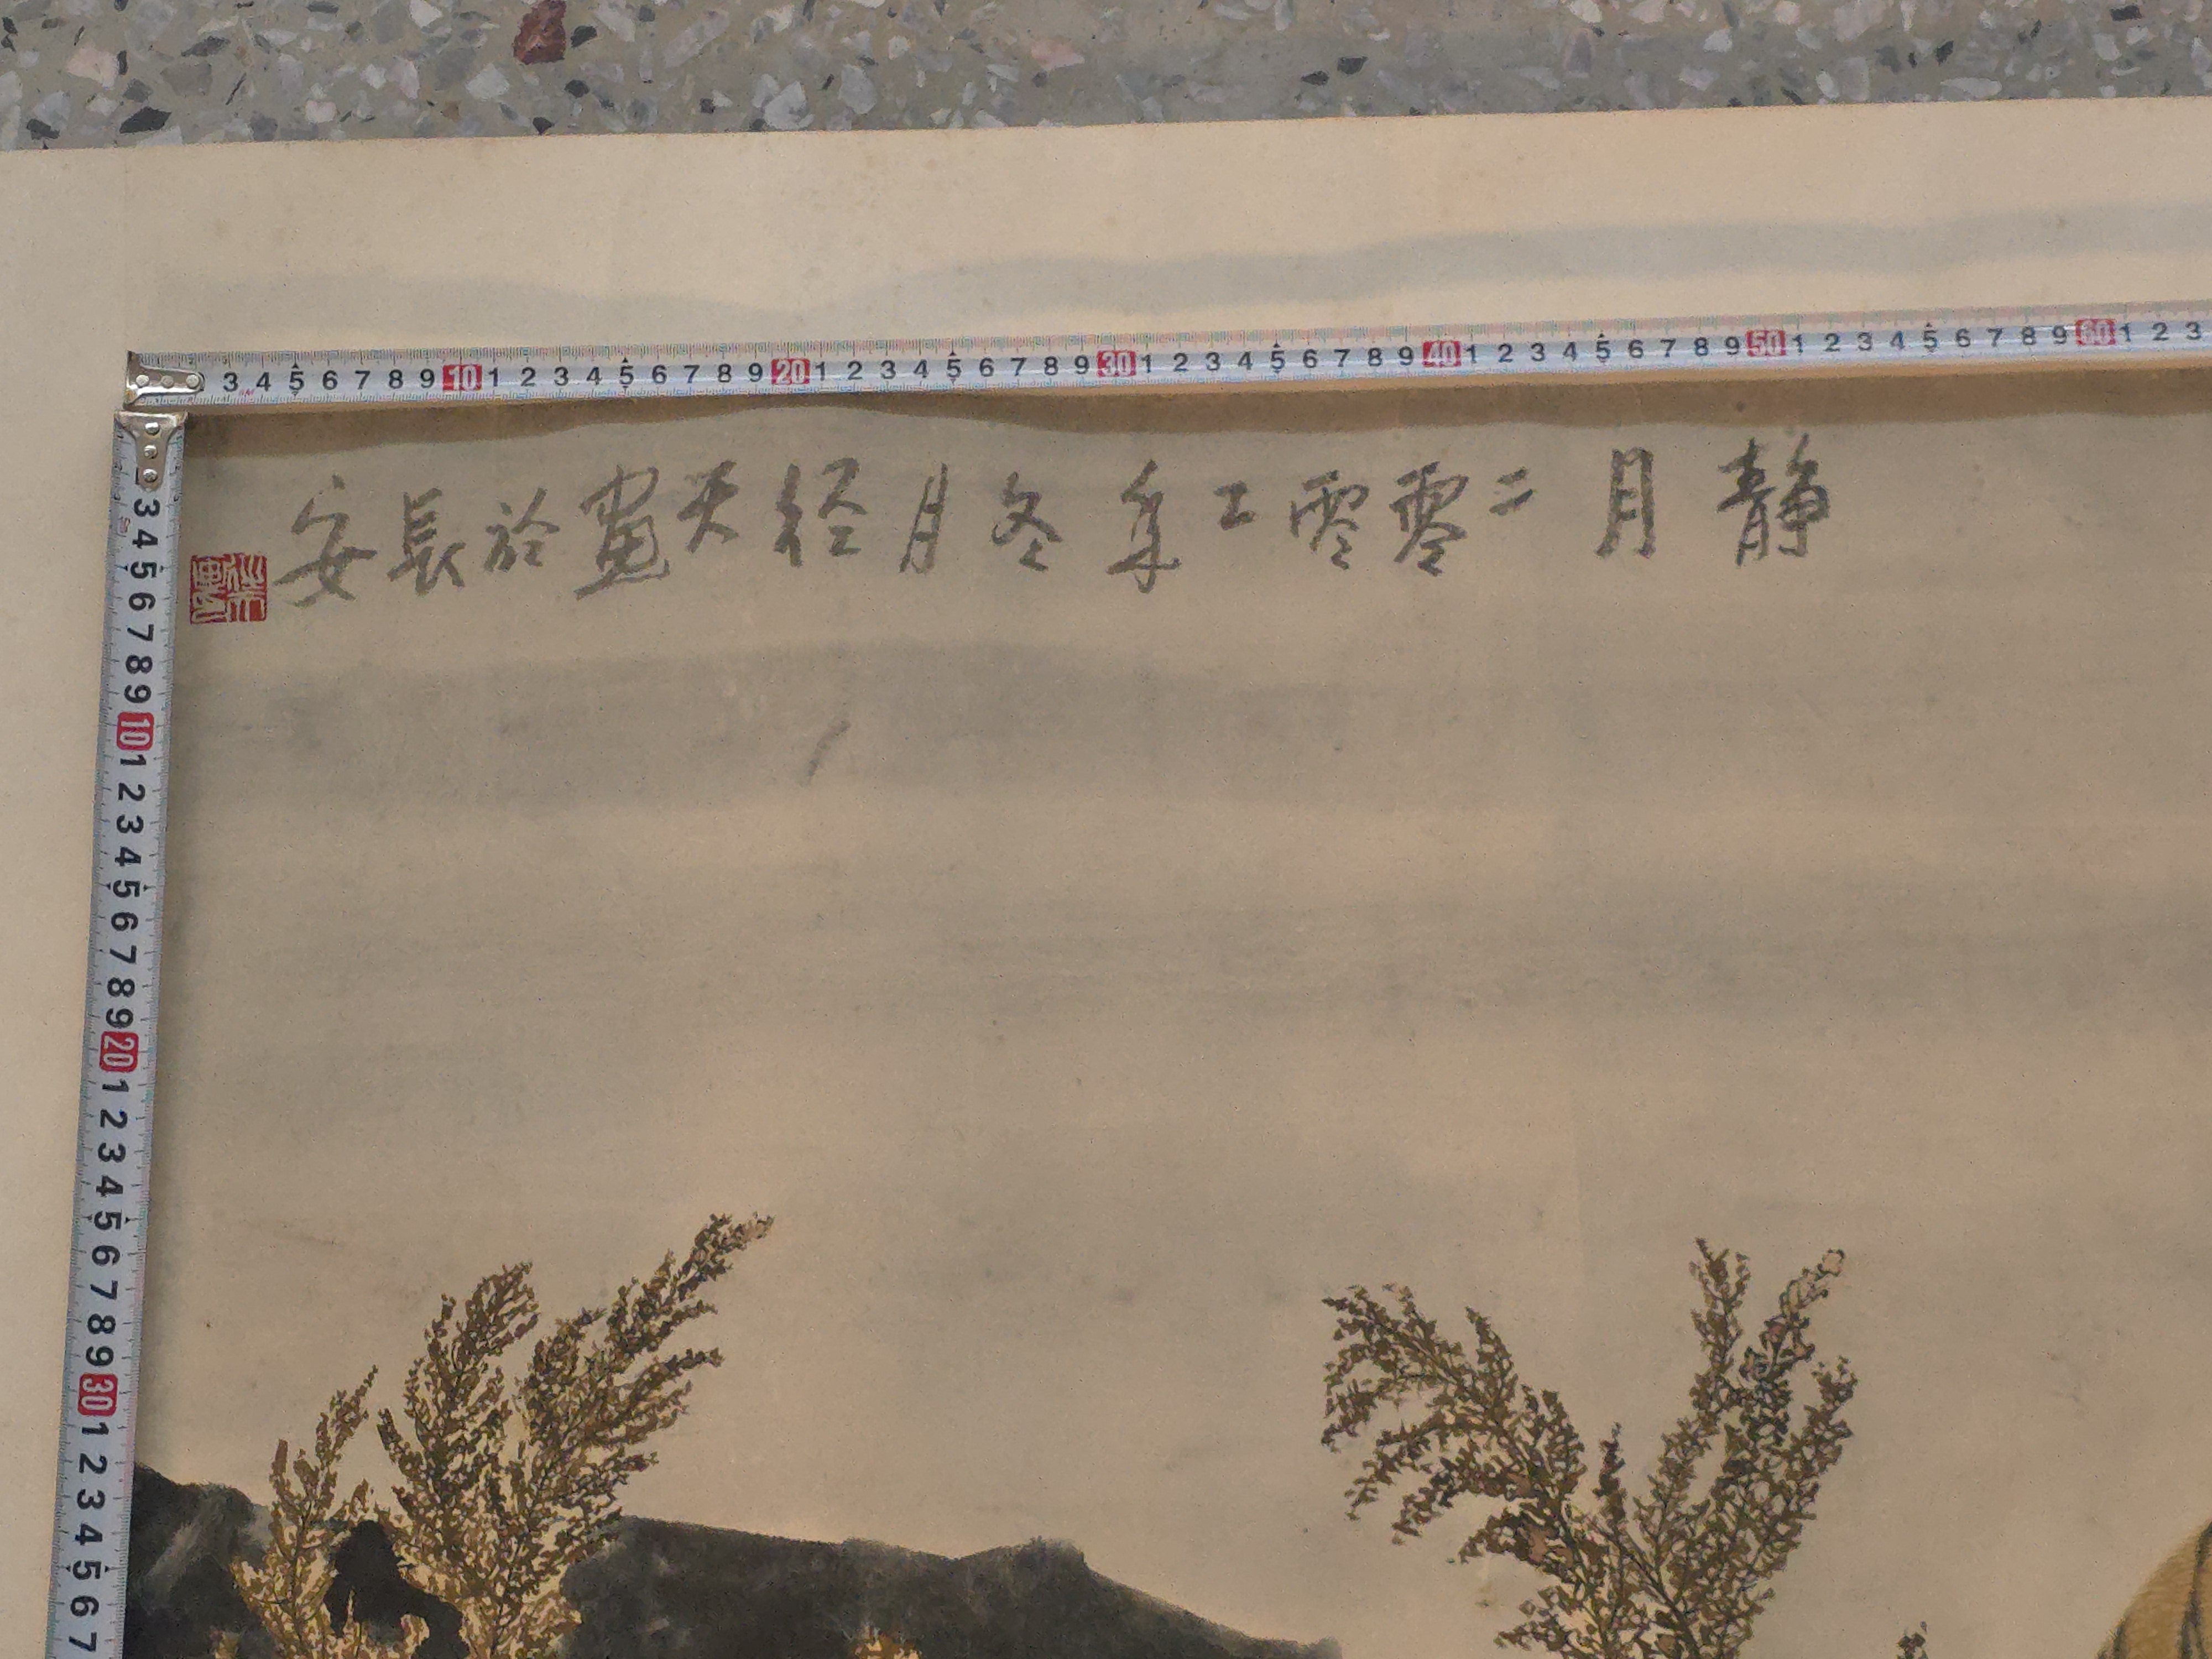 3 4 5 6 7 8 9 10 1 2 3 4 5 6 7 8 9 20 1 2 3 4 5 6 7 8 9 30 1 2 3 4 5 6 7 8 9 40 1 2 3 4 5 6 7 8 9 50 1 2 3 4 5 6 7 8 9 60 1 2 3
静月二零零二年冬月经天畫於長安
3 4 5 6 7 8 9 10 1 2 3 4 5 6 7 8 9 20 1 2 3 4 5 6 7 8 9 30 1 2 3 4 5 6 7